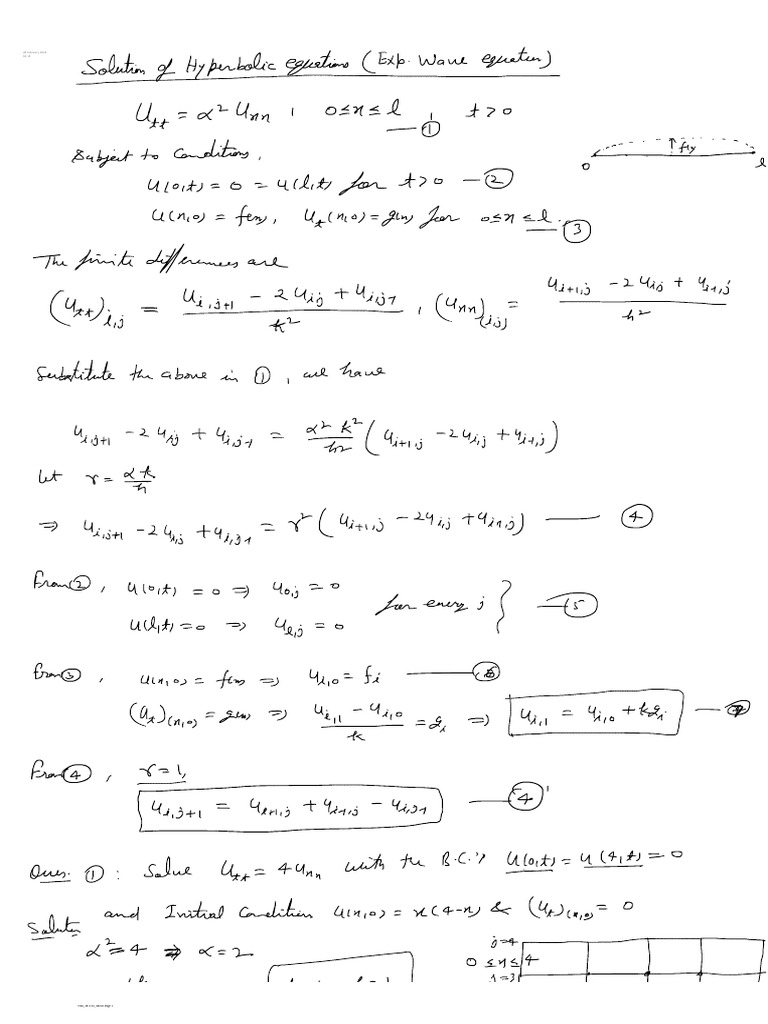 Solution of Hyperbolic equations (Exp. Wave equation)
U_tt = α² U_xx , 0≤x≤l , t>0 — ①
Subject to Conditions,
U(0,t) = 0 = U(l,t) for t>0 — ②
U(x,0) = f(x), U_t(x,0) = g(x) for 0≤x≤l. — ③
0 ↑ f(x) l
The finite differences are
(U_tt)_i,j = (U_i,j+1 − 2U_ij + U_i,j-1)/k² , (U_xx)_(i,j) = (U_i+1,j − 2U_ij + U_i-1,j)/h²
Substitute the above in ①, we have
U_i,j+1 − 2U_ij + U_i,j-1 = α²k²/h² (U_i+1,j − 2U_i,j + U_i-1,j)
Let r = αk/h
⇒ U_i,j+1 − 2U_i,j + U_i,j-1 = r² (U_i+1,j − 2U_i,j + U_i-1,j) — ④
From ②, U(0,t) = 0 ⇒ U_0,j = 0
U(l,t) = 0 ⇒ U_l,j = 0 for every j } — ⑤
From ③, U(x,0) = f(x) ⇒ U_i,0 = f_i — ⑥
(U_t)_(x,0) = g(x) ⇒ (U_i,1 − U_i,0)/k = g_i ⇒ U_i,1 = U_i,0 + kg_i — ⑦
From ④, r=1,
U_i,j+1 = U_i+1,j + U_i-1,j − U_i,j-1 — ④'
Ques. ①: Solve U_tt = 4U_xx with the B.C.'s U(0,t) = U(4,t) = 0
and Initial Condition U(x,0) = x(4−x) & (U_t)_(x,0) = 0
Solution
α² = 4 ⇒ α = 2.
0 ≤ x ≤ 4
j=4
j=3